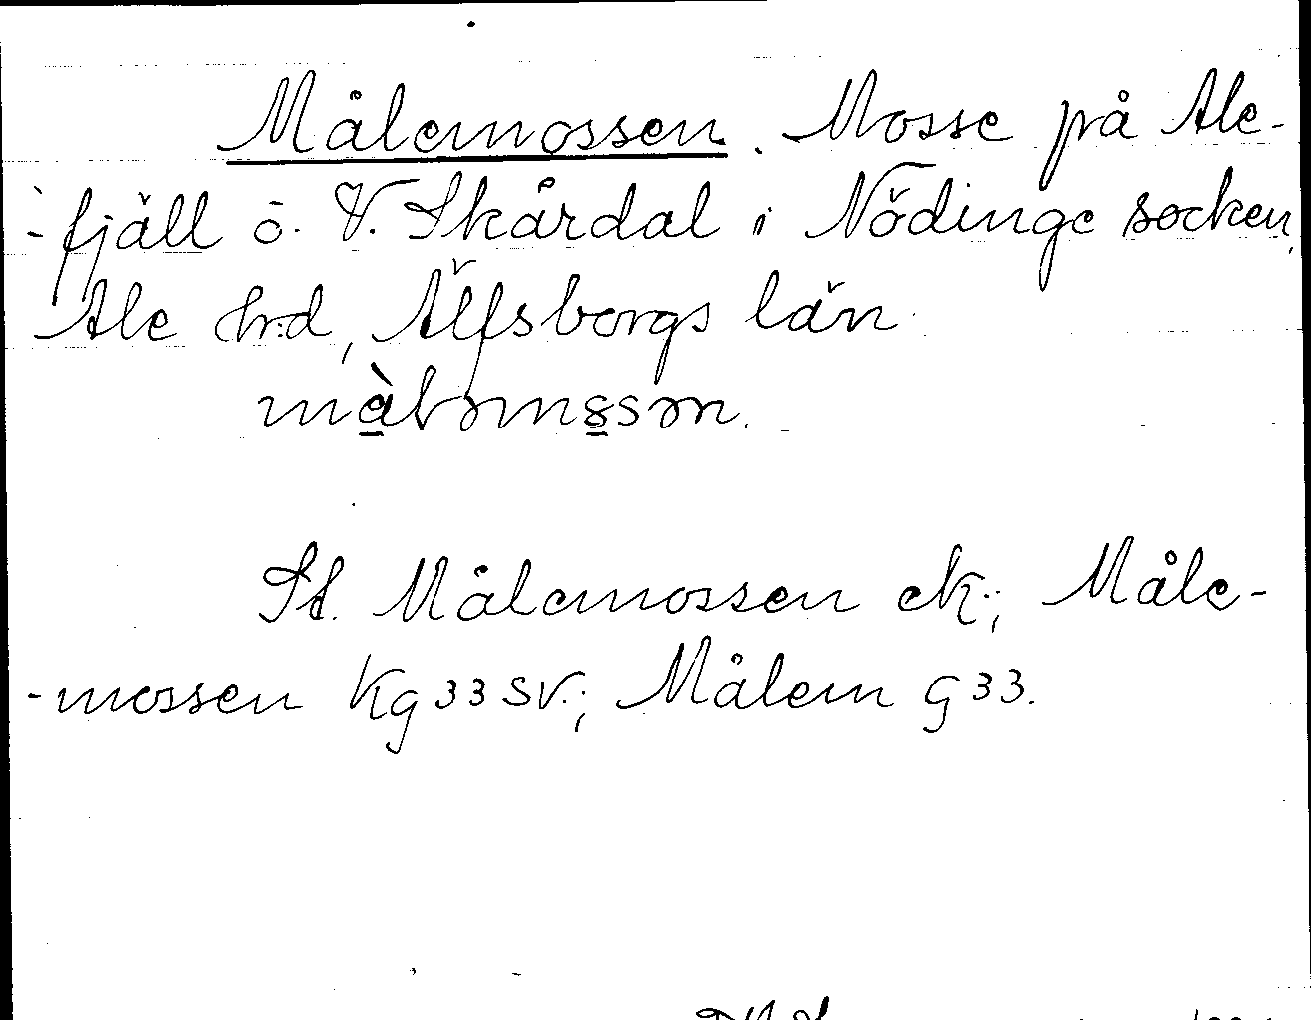 Målemossen. Mosse på Ale-
-fjäll ö. V. Skårdal i Nödinge socken,
Ale hrd, Älfsborgs län.
St. Målemossen ek.; Måle-
-mossen Kg 33 SV.; Målem G 33.